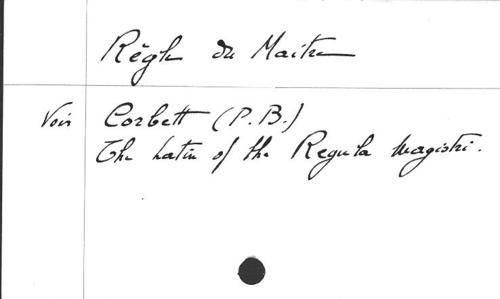 Règle du Maître
Voir Corbett (P.B.)
The Latin of the Regula Magistri.